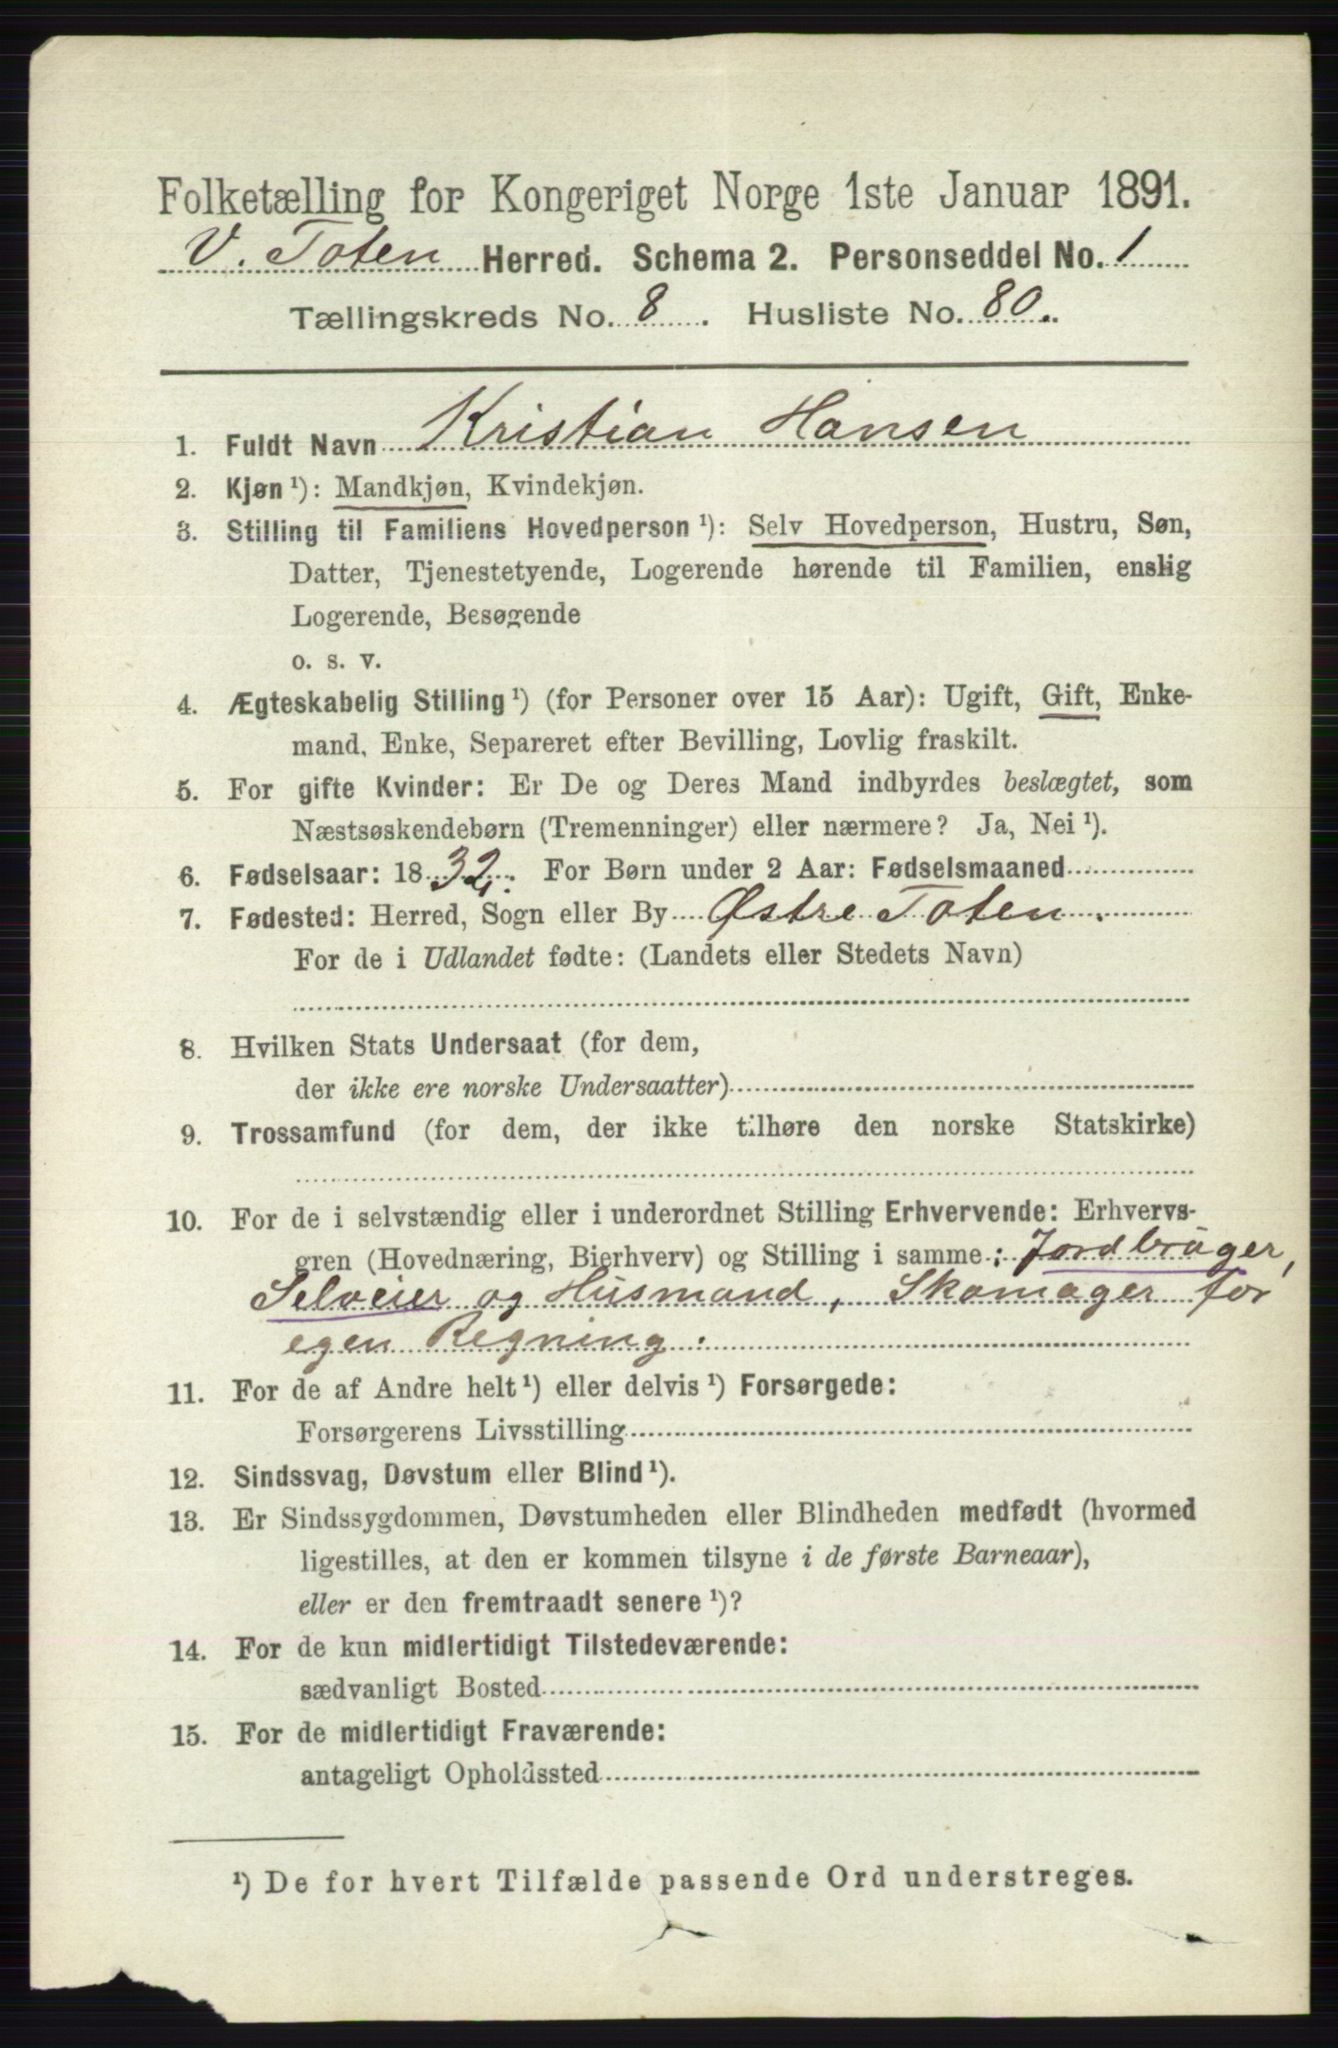 Folketælling for Kongeriget Norge 1ste Januar 1891.
V. Toten Herred. Schema 2. Personseddel No. 1
Tællingskreds No. 8. Husliste No. 80.
1. Fuldt Navn Kristian Hansen
2. Kjøn ¹): Mandkjøn, Kvindekjøn.
3. Stilling til Familiens Hovedperson ¹): Selv Hovedperson, Hustru, Søn,
Datter, Tjenestetyende, Logerende hørende til Familien, enslig
Logerende, Besøgende
o. s. v.
4. Ægteskabelig Stilling ¹) (for Personer over 15 Aar): Ugift, Gift, Enke-
mand, Enke, Separeret efter Bevilling, Lovlig fraskilt.
5. For gifte Kvinder: Er De og Deres Mand indbyrdes beslægtet, som
Næstsøskendebørn (Tremenninger) eller nærmere? Ja, Nei ¹).
6. Fødselsaar: 1832. For Børn under 2 Aar: Fødselsmaaned
7. Fødested: Herred, Sogn eller By Østre Toten.
For de i Udlandet fødte: (Landets eller Stedets Navn)
8. Hvilken Stats Undersaat (for dem,
der ikke ere norske Undersaatter)
9. Trossamfund (for dem, der ikke tilhøre den norske Statskirke)
10. For de i selvstændig eller i underordnet Stilling Erhvervende: Erhvervs-
gren (Hovednæring, Bierhverv) og Stilling i samme: Jordbruger,
Selveier og Husmand, Skomager for
egen Regning.
11. For de af Andre helt ¹) eller delvis ¹) Forsørgede:
Forsørgerens Livsstilling
12. Sindssvag, Døvstum eller Blind ¹).
13. Er Sindssygdommen, Døvstumheden eller Blindheden medfødt (hvormed
ligestilles, at den er kommen tilsyne i de første Barneaar),
eller er den fremtraadt senere ¹)?
14. For de kun midlertidigt Tilstedeværende:
sædvanligt Bosted
15. For de midlertidigt Fraværende:
antageligt Opholdssted
¹) De for hvert Tilfælde passende Ord understreges.